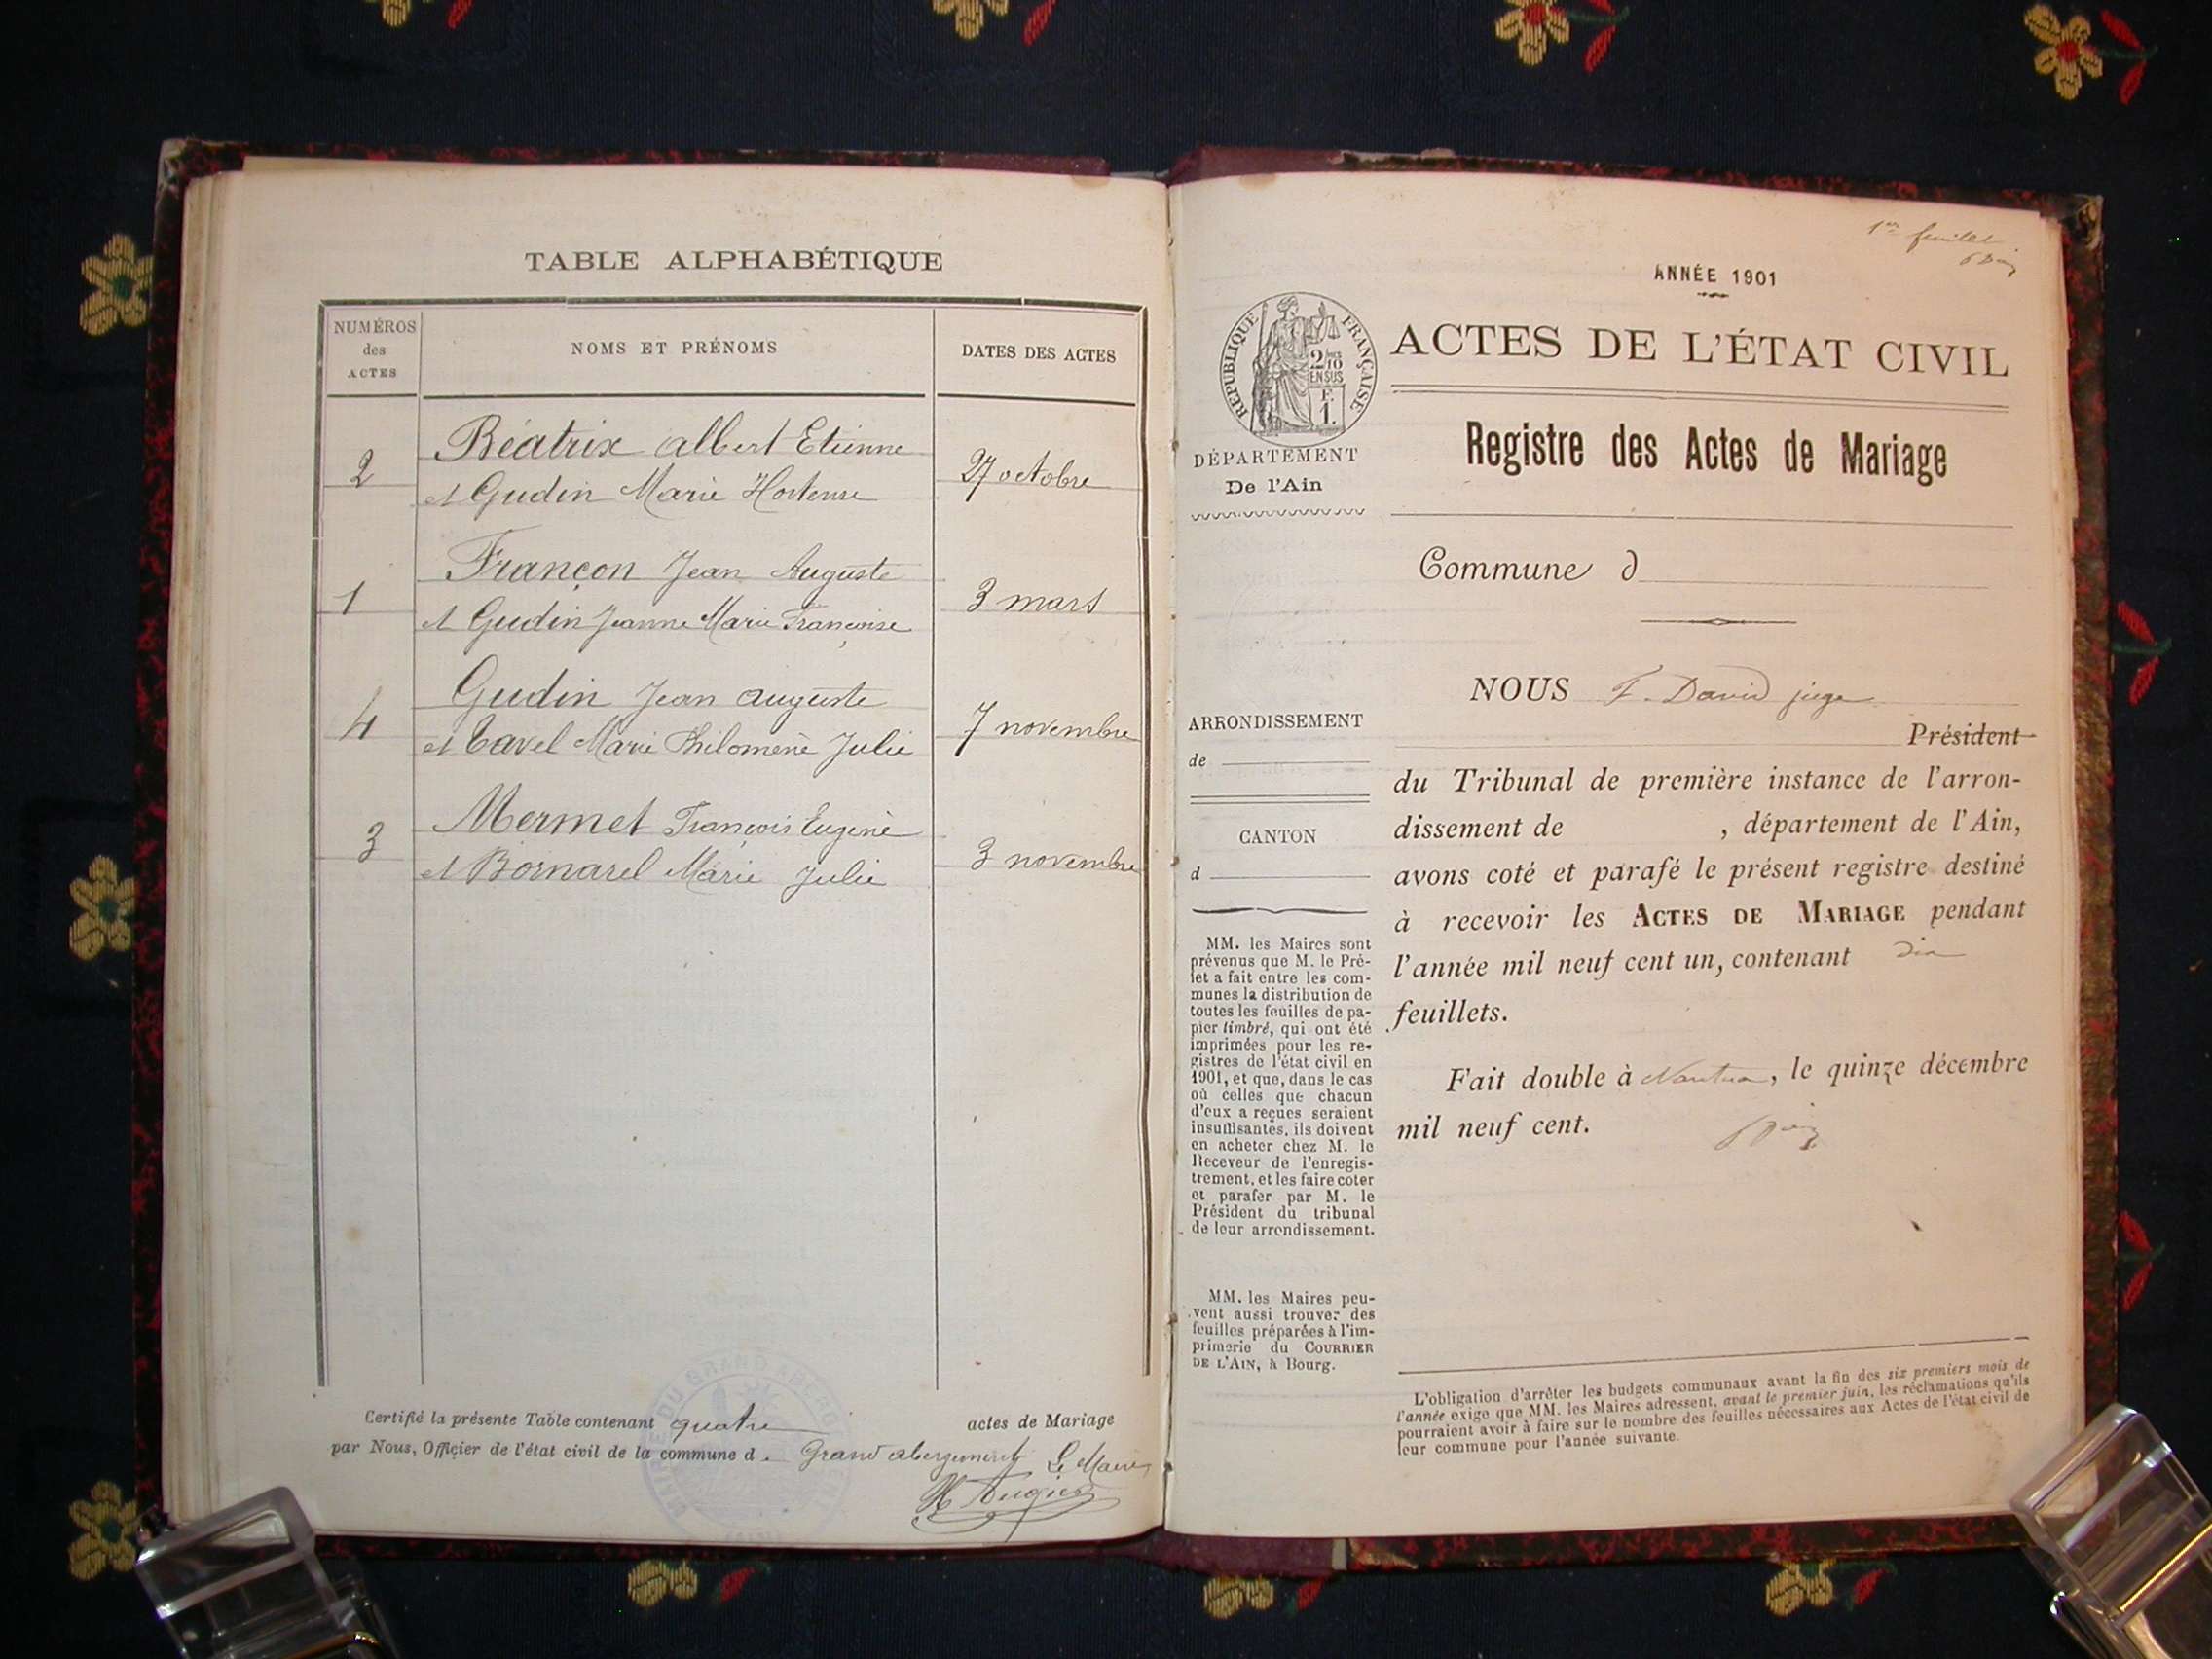 TABLE ALPHABÉTIQUE
NUMÉROS
des
ACTES
NOMS ET PRÉNOMS
DATES DES ACTES
2
Béatrix Albert Etienne
et Gudin Marie Hortense
27 octobre
1
Françon Jean Auguste
et Gudin Jeanne Marie Françoise
3 mars
4
Gudin Jean Auguste
et Tavel Marie Philomène Julie
7 novembre
3
Mermet François Eugène
et Bornarel Marie Julie
3 novembre
Certifié la présente Table contenant quatre actes de Mariage
par Nous, Officier de l'état civil de la commune d. Grand abergement Le Maire
MAIRIE DU GRAND ABERGEMENT
1er feuillet
ANNÉE 1901
RÉPUBLIQUE FRANÇAISE
2/10
EN SUS
F.
1.
ACTES DE L'ÉTAT CIVIL
DÉPARTEMENT
De l'Ain
Registre des Actes de Mariage
Commune d
NOUS F. David juge
Président
ARRONDISSEMENT
de
CANTON
d
du Tribunal de première instance de l'arron-
dissement de , département de l'Ain,
avons coté et parafé le présent registre destiné
à recevoir les ACTES DE MARIAGE pendant
l'année mil neuf cent un, contenant dix
feuillets.
Fait double à Nantua, le quinze décembre
mil neuf cent.
MM. les Maires sont
prévenus que M. le Pré-
fet a fait entre les com-
munes la distribution de
toutes les feuilles de pa-
pier timbré, qui ont été
imprimées pour les re-
gistres de l'état civil en
1901, et que, dans le cas
où celles que chacun
d'eux a reçues seraient
insuffisantes, ils doivent
en acheter chez M. le
Receveur de l'enregis-
trement, et les faire coter
et parafer par M. le
Président du tribunal
de leur arrondissement.
MM. les Maires peu-
vent aussi trouver des
feuilles préparées à l'im-
primerie du COURRIER
DE L'AIN, à Bourg.
L'obligation d'arrêter les budgets communaux avant la fin des six premiers mois de
l'année exige que MM. les Maires adressent, avant le premier juin, les réclamations qu'ils
pourraient avoir à faire sur le nombre des feuilles nécessaires aux Actes de l'état civil de
leur commune pour l'année suivante.